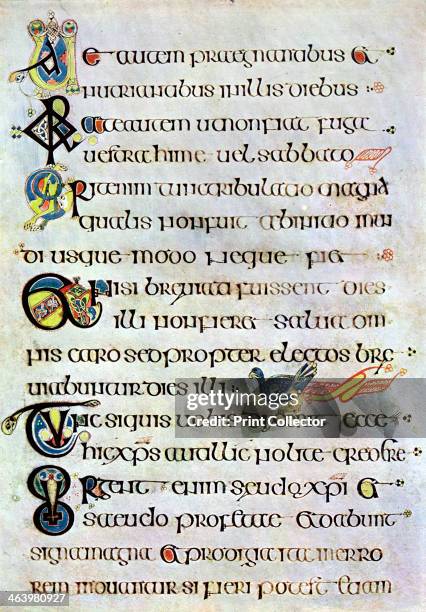 Uae autem praegnantibus et
nutriantibus inillis diebus
Orate autem ut non fiat fuga
uestra hieme uel sabbato
Erit enim tunc tribulatio magna
qualis non fuit ab initio mun
di usque modo neque fiet
Et nisi breuiati fuissent dies
illi non fieret salua om
nis caro sed propter electos bre
uiabuntur dies illi
Tunc siquis ecce
hic xps aut illic nolite credere
Surgent enim seudoxpi et
seudo profetae et dabunt
signa magna et prodigia ita in erro
rem moueantur si fieri potest etiam
gettyimages
Credit: Print Collector
463980927